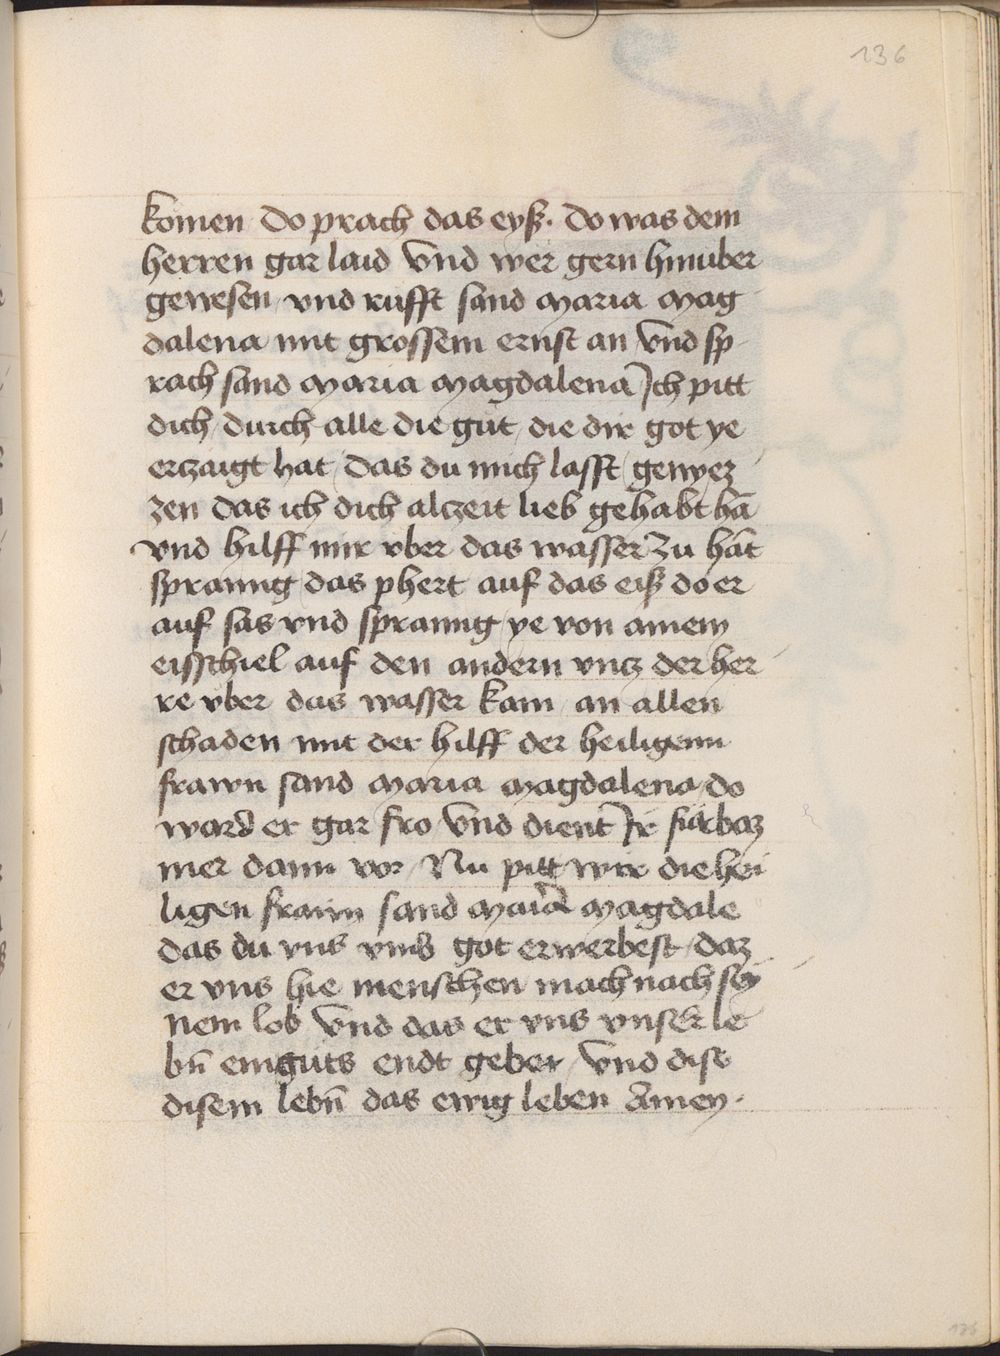 136
komen Do prach das eyß. Do was dem
herren gar laid Vnd wer gern hinuber
gewesen / vnd rufft sand Maria Mag
dalena mit grossem ernst an Vnd sp
rach sand Maria Magdalena Ich pitt
dich / durch alle die güt / die dir got ye
erczaigt hat / das du mich lasst / genyez
zen das ich dich alczeit lieb gehabt hā
vnd hilff mir vber das wasser Zu hāt
spranng das phert auf das eiß do er
auf sas vnd spranng / ye von ainem
eisschiel auf den andern vntz der her
re vber das wasser kam / an allen
schaden mit der hilff der heiligenn
frawn sand Maria Magdalena / do
ward er gar fro Vnd dient Ir fürbaz
mer dann vor / Nu pitt wir die hei
ligen frawn sand Maria Magdale
das du vns vmb got erwerbest / daz
er vns hie menschen mach nach sey
nem lob Vnd das er vns vnser le
bn̄ ein guts endt geber / Vnd disе
disem lebn̄ das ewig leben Amen.
136